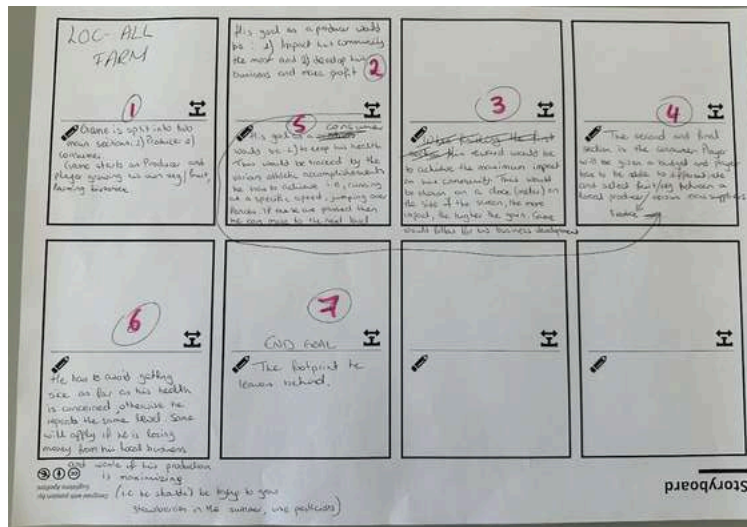 LOC-ALL
FARM
1
Game is split into two
main sections, 1) Producer 2)
consumer.
Game starts as Producer and
player growing his own veg/fruit,
farming business.
His goal as a producer would
be: 1) Impact his community
the most and 2) develop his
business and make profit
2
5
consumer
His goal as a
would be to keep his health
This would be tracked by the
various athletic accomplishments
he has to achieve i.e. running
at a specific speed, jumping over
fences. If these are passed then
he can move to the next level
3
When finishing the first
his reward would be
to achieve the maximum impact
on his community. This would
be shown on a clock (meter) on
the side of the screen, the more
impact, the higher the gain. Same
would follow for his business development
4
The second and final
section is the consumer. Player
will be given a budget and player
has to be able to differentiate
and select fruit/veg between a
local producer/ versus mass suppliers
6
He has to avoid getting
sick as far as his health
is concerned, otherwise he
repeats the same level. Same
will apply if he is losing
money from his local business
and while if his production
is maximizing
(i.e. he shouldn't be trying to grow
strawberries in the summer, use pesticides)
7
END GOAL
The footprint he
leaves behind.
Storyboard
Designed with passion by: